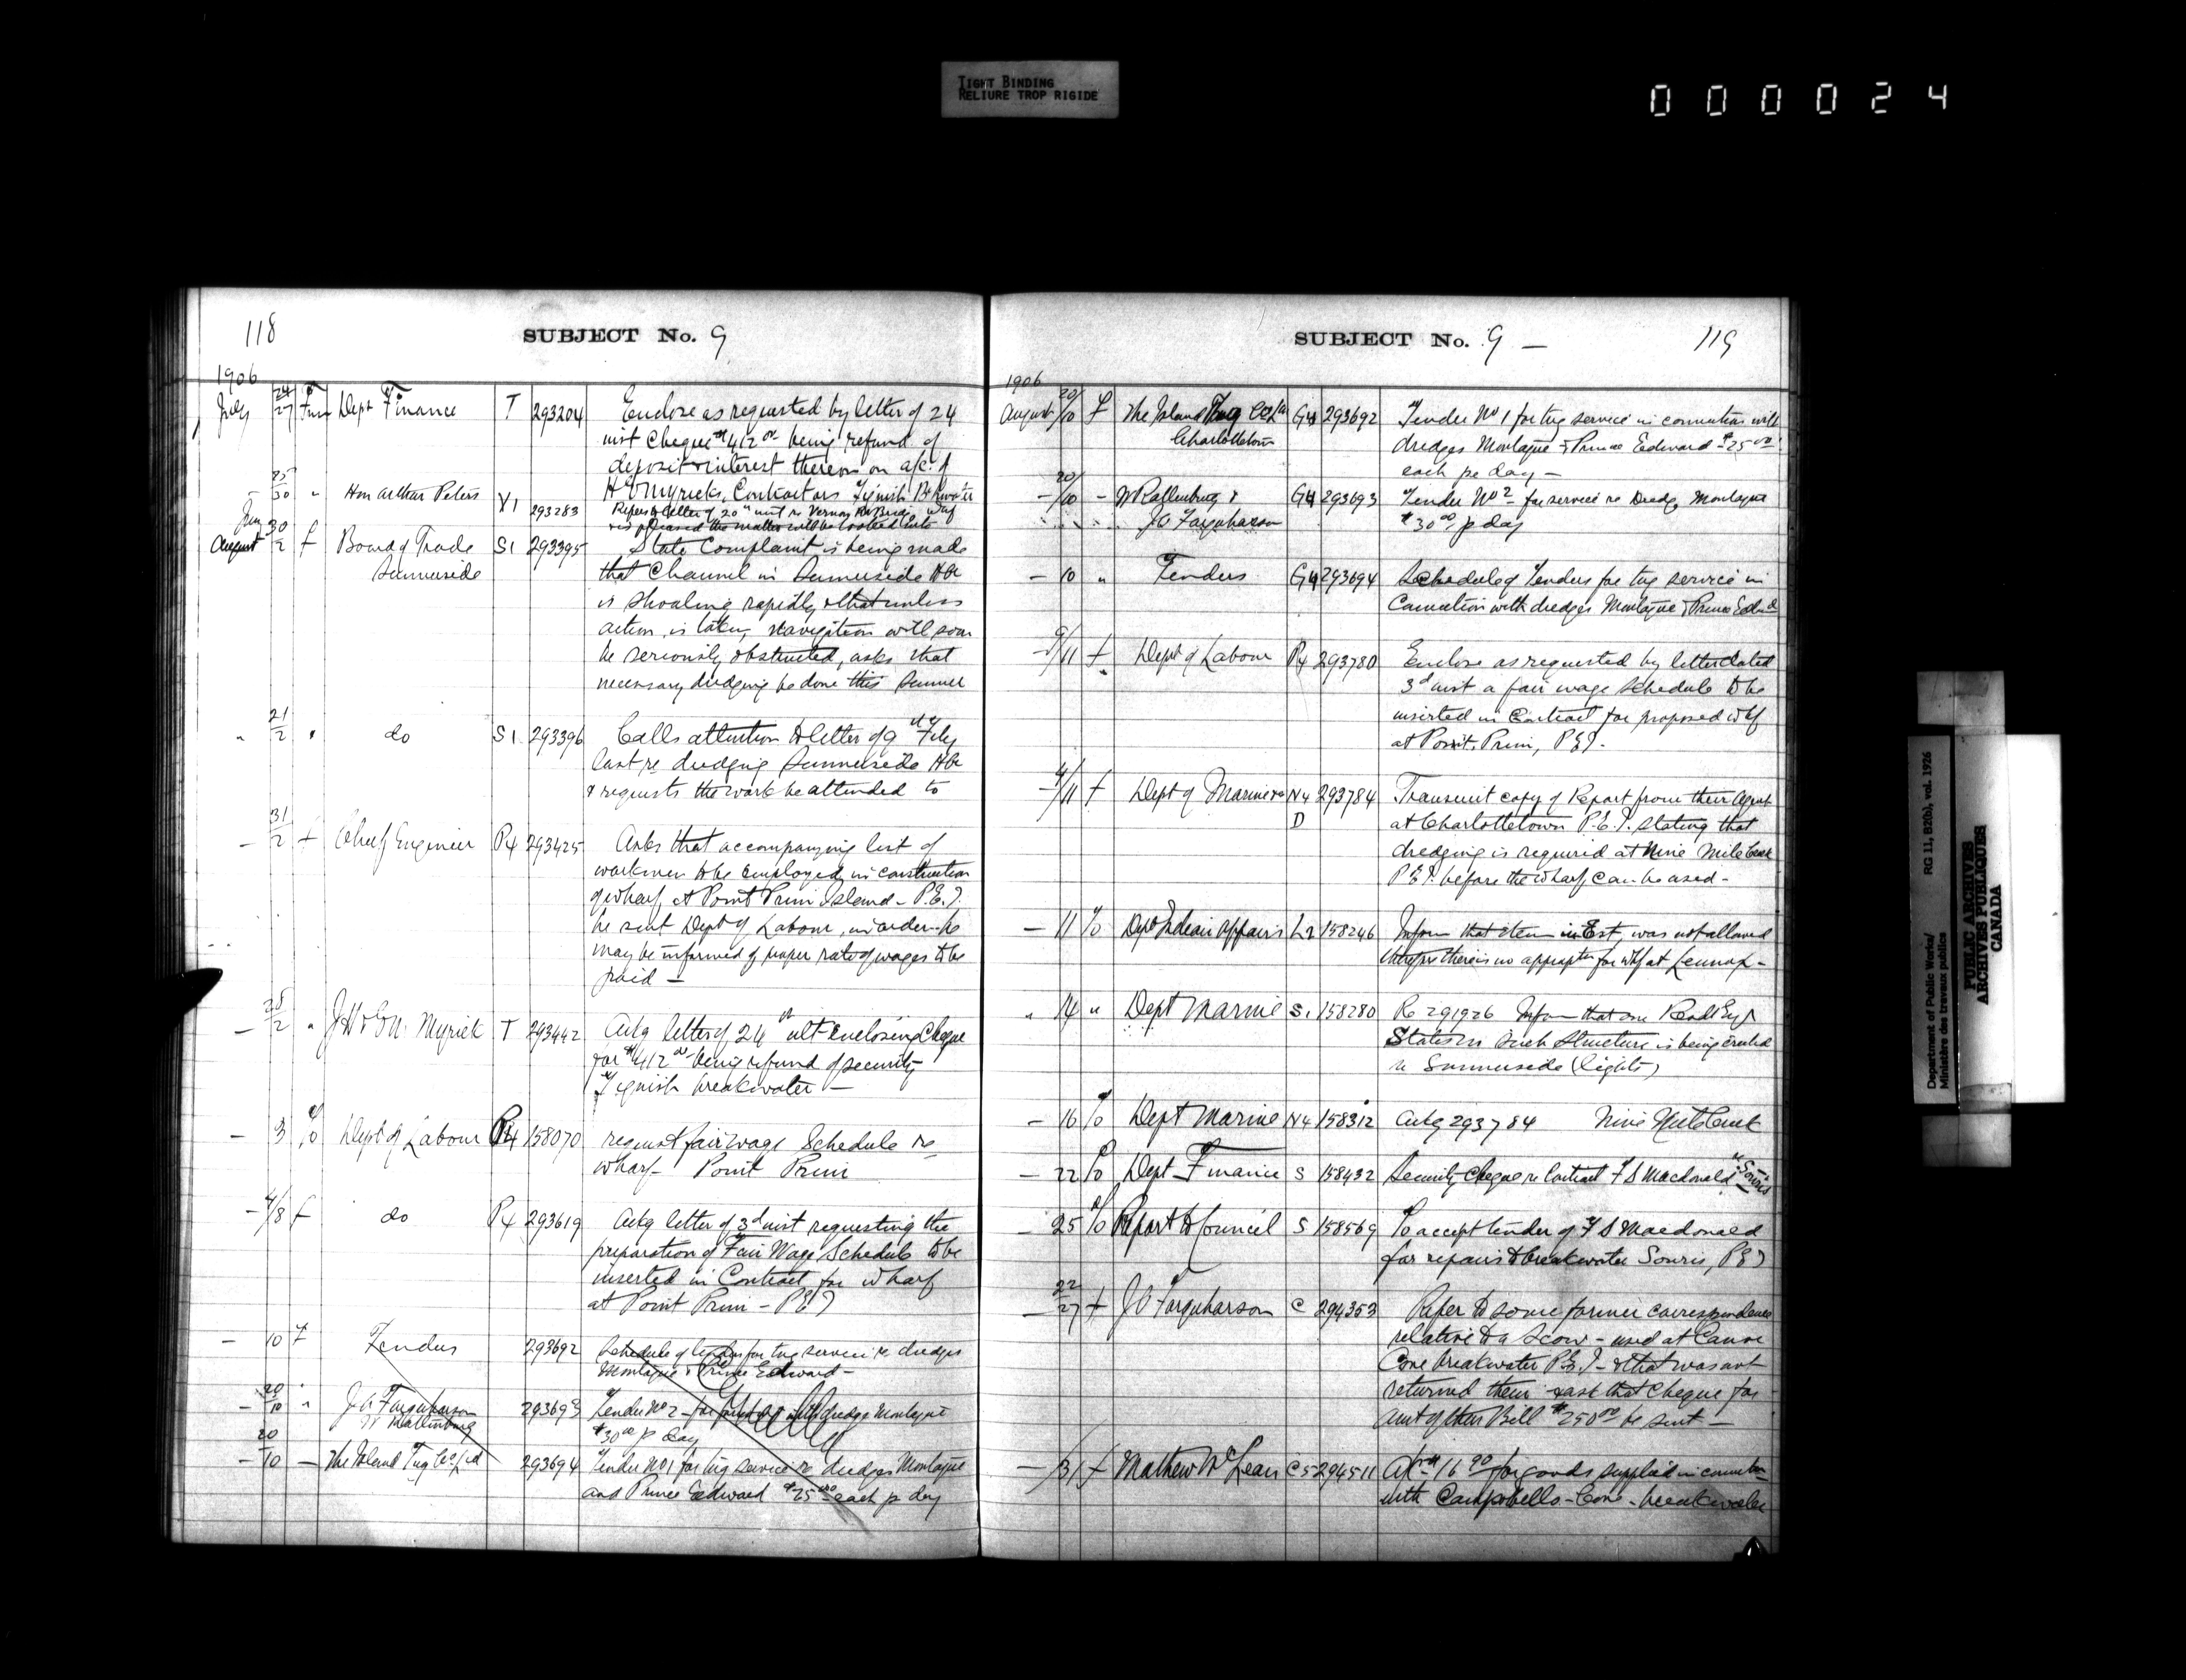 TIGHT BINDING
RELIURE TROP RIGIDE
000024
118
SUBJECT No. 9
1906
July 24/27 Dept Finance T 293204 Enclose as requested by letter of 24
inst cheque $412 00 being refund of
deposit & interest thereon on a/c of
Myrick, Contractors Tignish
25/30 " Hon Arthur Peters V1 293283 letter of 20" inst re Vernon
the matter will be looked into
August 30/2 f Board of Trade S1 293395 State Complaint is being made
Summerside that Channel in Summerside Hbr
is shoaling rapidly & that unless
action is taken, navigation will soon
be seriously obstructed, asks that
necessary dredging be done this Summer
" 21/2 " do S1 293396 Calls attention to letter of 9th Feby
last re dredging Summerside Hbr
& requests the work be attended to
— 31/2 f Chief Engineer P4 293425 Asks that accompanying list of
workmen to be employed in construction
of wharf at Point Prim Island - P.E.I.
be sent Dept of Labour, in order he
may be informed of proper rate of wages to be
paid —
— 28/2 " J H & Myrick T 293442 Ackg letter of 24th ult enclosing Cheque
for $412 00 being refund of security
Tignish breakwater —
— 3 Dept of Labour P4 158070 request fair wage Schedule re
wharf - Point Prim
— 4/8 f do P4 293619 Ackg letter of 3d inst requesting the
preparation of Fair Wage Schedule to be
inserted in Contract for wharf
at Point Prim - PEI
— 10 f Tenders 293692 Schedule of tenders for tug service re dredges
Montague & Prince Edward —
— 20/10 " J A Farquharson 293693 Tender No 2 - for dredge Montague
$30 00 p day
— 20/10 — The Island Tug Co Ltd 293694 Tender No 1 for tug service re dredges Montague
and Prince Edward $25 00 each p day
SUBJECT No. 9 —
119
1906
August 20/10 f The Island Tug Co Ld G4 293692 Tender No 1 for tug service in connection with
Charlottetown dredges Montague & Prince Edward $25 00
each per day —
— 20/10 — G4 293693 Tender No 2 for service re Dredge Montague
J A Farquharson $30 00 p day
— 10 " Tenders G4 293694 Schedule of Tenders for tug service in
Connection with dredges Montague & Prince Edwd
— 9/11 f Dept of Labour P4 293780 Enclose as requested by letter dated
3d inst a fair wage schedule to be
inserted in Contract for proposed whf
at Point Prim, PEI.
— 4/11 f Dept of Marine N4 293784 Transmit copy of Report from their Agent
D at Charlottetown P.E.I. stating that
dredging is required at Nine Mile Creek
PEI. before the wharf can be used -
— 11 Dept Indian Affairs L2 158246 Inform that item in Est, was not allowed
therefore there is no approptn for whf at Lennox -
" 14 " Dept Marine S1 158280 Re 291926 Inform that our Resdt Engr
States no such structure is being erected
re Summerside (lights)
— 16 Dept Marine N4 158312 Ackg 293784 Nine Mile Creek
— 22 Dept Finance S 158432 Security Cheque re Contract F S Macdonald re Souris
— 25 Report to Council S 158569 To accept tender of F S Macdonald
for repairs to breakwater Souris, PEI
— 22/27 f J A Farquharson C 294353 Refer to some former correspondence
relative to a Scow - used at Canoe
Cove breakwater P.E.I. - & that was not
returned them & ask that cheque for
amt of their Bill $250 00 be sent —
— /31 f Mathew McLean C5 294511 16 90 for goods supplied in
with Campbells - Cove - breakwater
Department of Public Works/
Ministère des travaux publics
RG 11, B2(b), vol. 1926
PUBLIC ARCHIVES
ARCHIVES PUBLIQUES
CANADA